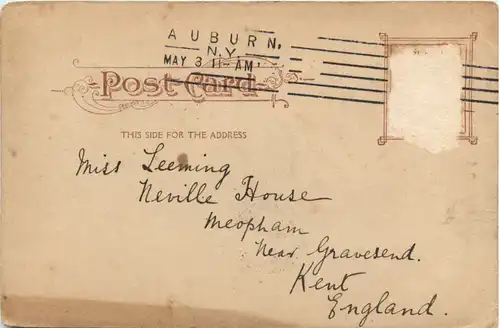 AUBURN,
N.Y.
MAY 3 11-AM
Post Card
THIS SIDE FOR THE ADDRESS
Miss Leeming
Neville House
Meopham
Near Gravesend.
Kent
England.